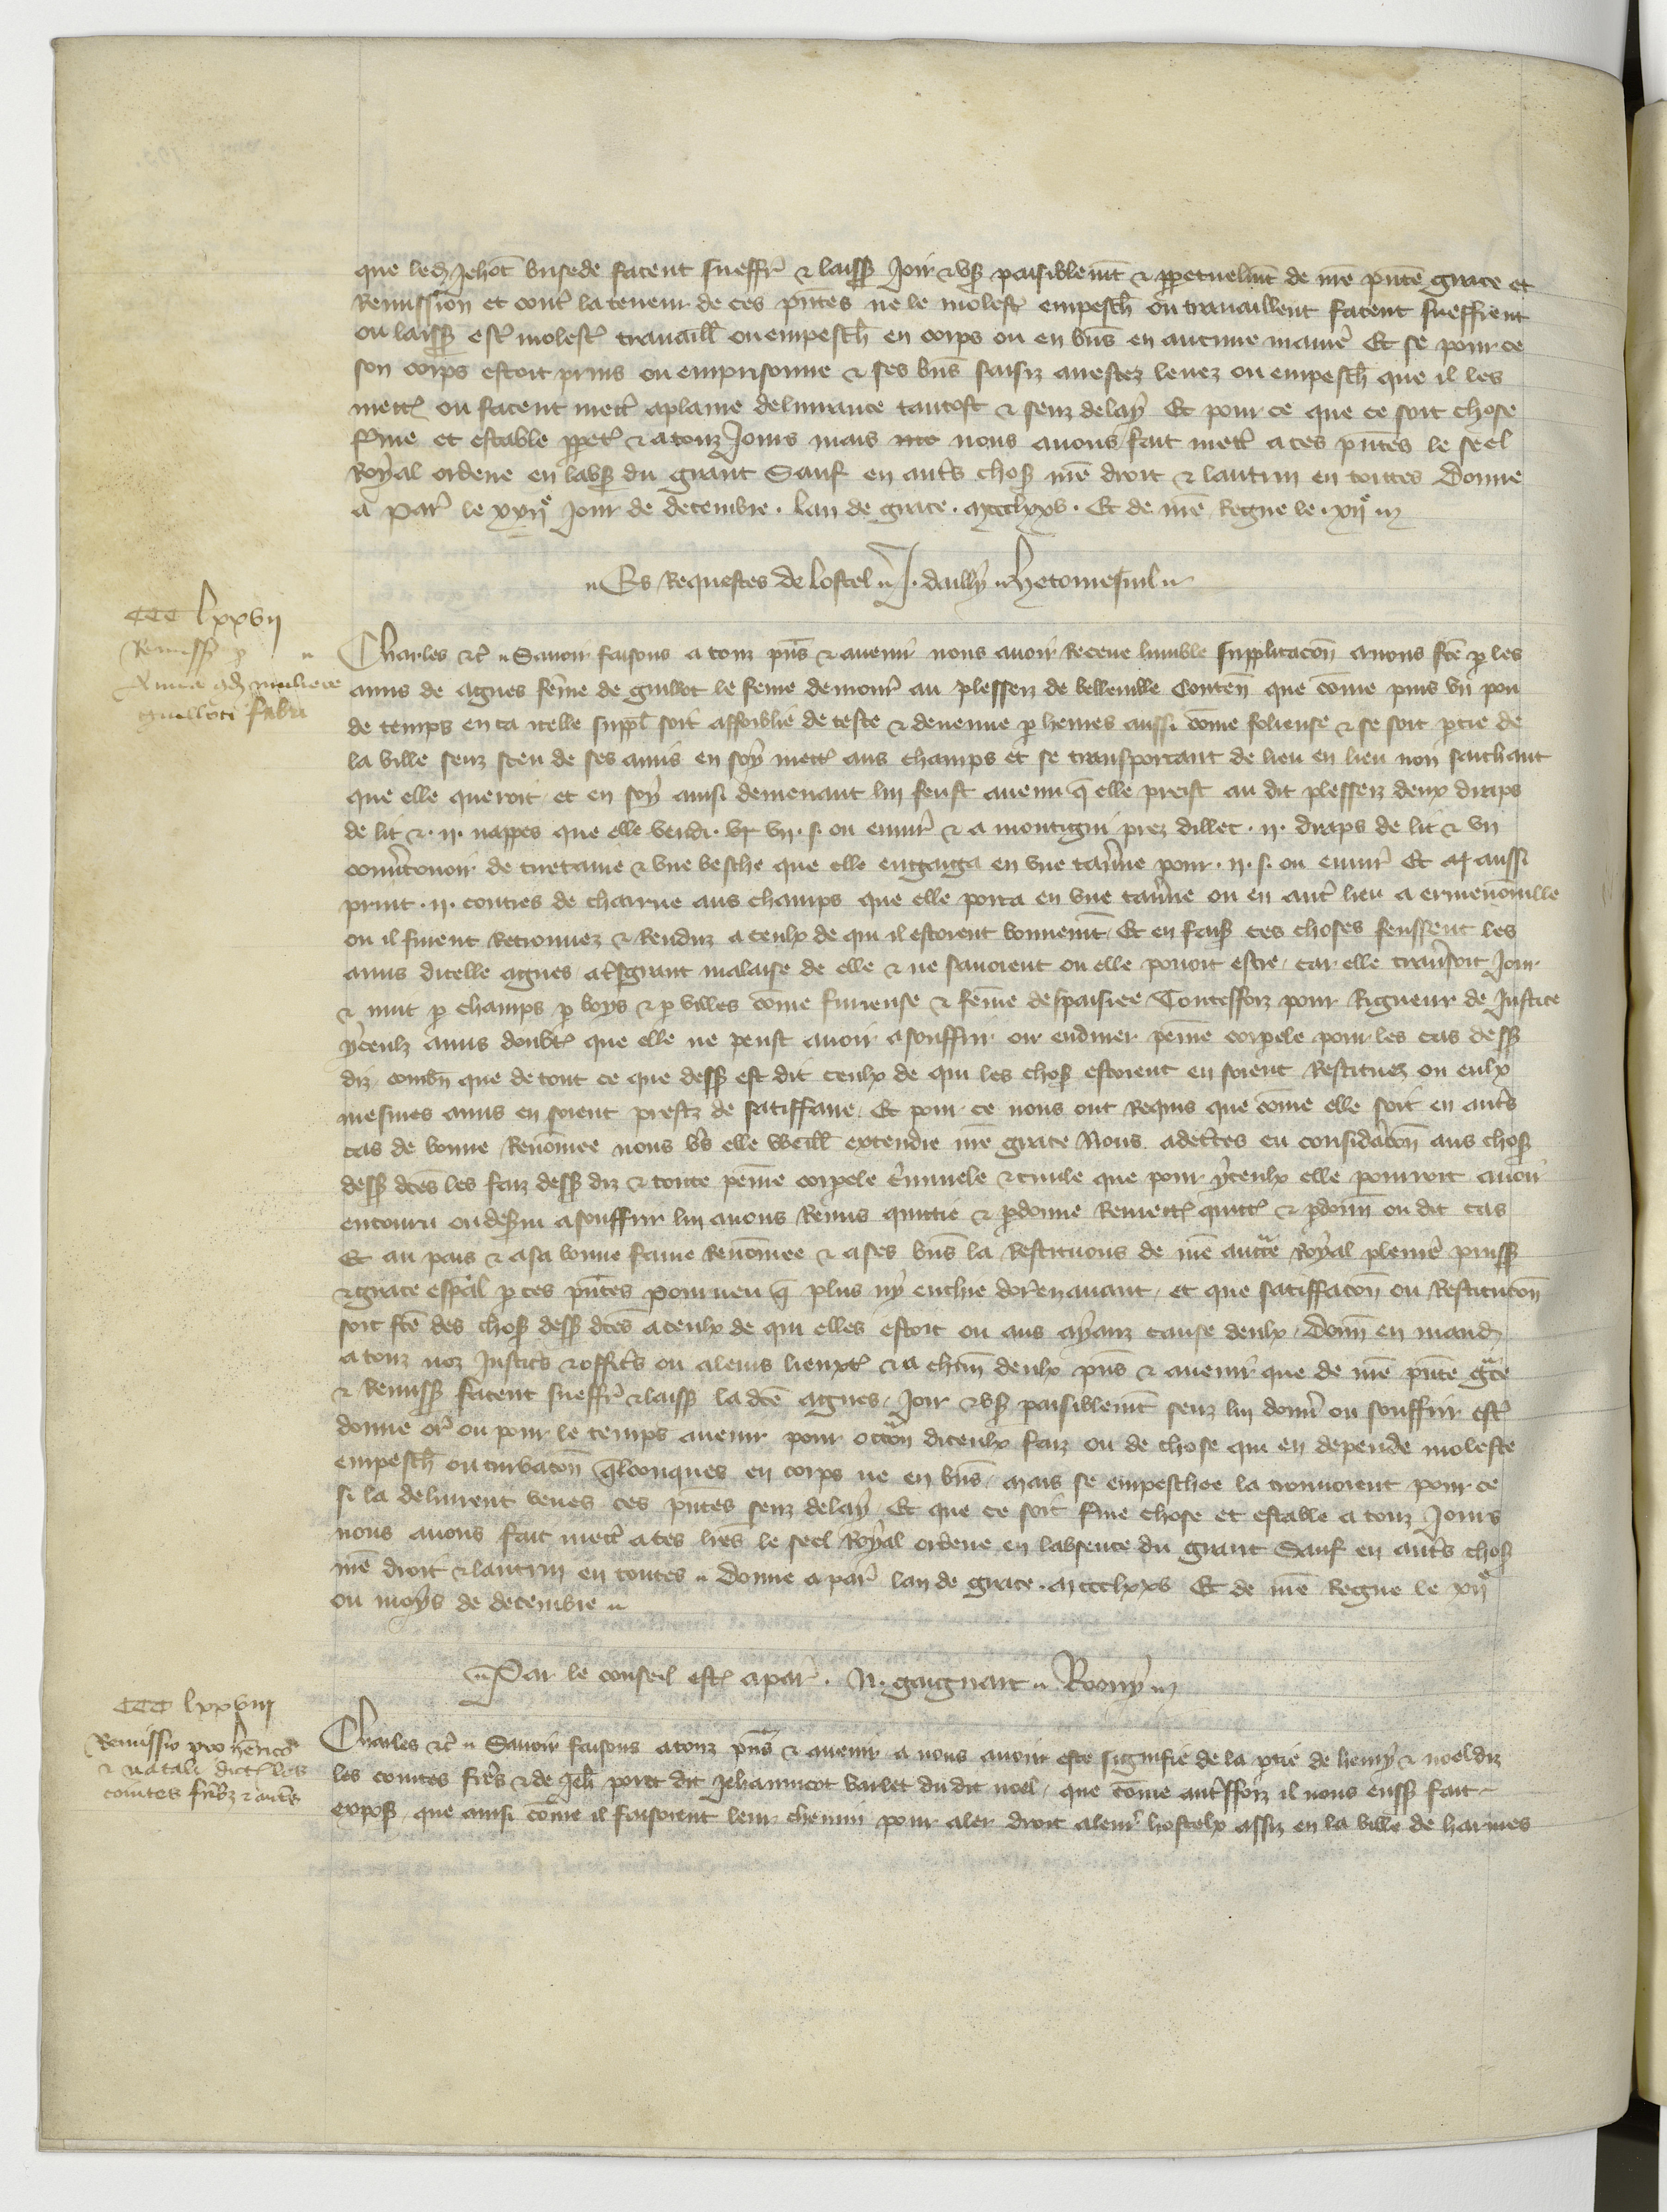 que led Jehot busede facent sueffr & laiss Joir & us paisiblemt & ppetuelmt de nre pnte grace et
Remission et contr la teneur de ces pntes ne le molest empesch ou travaillent facent sueffrent
ou laiss estr molest travaill ou empesch en corps ou en bns en aucune manier Et se pour ce
son corps estoit prins ou emprisonne & ses bns saisiz arrestez levez ou empesch que il les
mett ou facent mettr a plaine delivrance tantost & senz delay Et pour ce que ce soit chose
ferme et estable ppet & a touz Jours mais nous avons fait mettr a ces pntes le seel
Royal ordene en labs du grant Sauf en autrs chos nre droit & lautruy en toutes Donne
a Par le xxije Jour de decembre . lan de grace . mccclxxv . Et de nre Regne le . xije
Es Requestes de lostel J. dailly hetomesnil
CCC lxxvij
Remiss p
Agnete uxore
guilloti fabri
Charles &c Savoir faisons a touz pns & avenir nous avoir Receue lumble supplicacon avons fte p les
amis de agnes feme de guillot le fevre demour au plesseiz de belleville Conten que come puis un pou
de temps en ca icelle suppl soit affoiblie de teste & devenue p heures aussi come folieuse & se soit ptie de
la ville senz sceu de ses amis en soy mett aus champs et se transportant de lieu en lieu non saichant
que elle queroit et en soy ainsi demenant lui feust avenu q elle preist au dit plesseiz deux draps
de lit & . ij . nappes que elle vendi . vj vij . s. ou envir & a montigni prez dillec . ij . draps de lit & un
couvertouoir de tiretaine & une besche que elle engaiga en une taverne pour . ij . s. ou envir Et aussi
print . ij . coutres de charrue aus champs que elle porta en une taverne ou en autr lieu a ermenonville
ou il furent Retrouvez & Renduz a ceulx de qui il estoient bonnemt Et en fais ces choses feussent les
amis dicelle agnes a tsgrant malaise de elle & ne savoient ou elle povoit estre car elle traversoit Jour
& nuit p champs p boys & p villes come furieuse & feme despaisiee Toutesfoiz pour Rigueur de Justice
yceulz amis doubt que elle ne peust avoir a souffrir ou endurer peine corpele pour les cas dess
diz combn que de tout ce que dess est dit ceulx de qui les chos estoient en soient Restituez ou eulx
mesmes amis en soient prestz de satiffaire Et pour ce nous ont Requis que come elle soit en autrs
cas de bonne Renomee nous vrs elle weill extendre nre grace Nous adectes en consideracon aus chos
dess dctes les faiz dess diz & toute peine corpele criminele & civile que pour yceulx elle pourroit avoir
encouru ou desservi a souffrir lui avons Remis quittie & pdonne Remett quitt & pdonn ou dit cas
Et au pais & a sa bonne fame Renomee & a ses bns la Restituons de nre aucte Royal pleniere puiss
& grace espal p ces pntes pourveu q plus ny enchie doresnavant et que satiffacon ou Restitucon
soit fte des chos dess dctes a ceulx de qui elles estoit ou aus ayanz cause deulx Donn en mand
a touz noz Justics & offics ou a leurs lieuxt & a chun deulx pns & avenir que de nre pnte gce
& Remiss facent sueffr & laiss la dte agnes Joir & us paisiblemt senz lui donner ou souffrir estr
donne or ou pour le temps avenir pour occon diceulx faiz ou de chose qui en depende moleste
empesch ou turbacon qlconques en corps ne en bns mais se empeschee la trouvoient pour ce
si la delivrent veues ces pntes senz delay Et que ce soit ferme chose et estable a touz Jours
nous avons fait mettr a ces lres le seel Royal ordene en labsence du grant Sauf en autrs chos
nre droit & lautruy en toutes Donne a par lan de grace . mccclxxv Et de nre Regne le xije
ou moys de decembre
Par le conseil est a par . N . gaignart Roony
CCC lxxviij
Remissio pro henrico
& natali dict les
contes frbz & autrs
Charles &c Savoir faisons a touz pns & avenir a nous avoir este signifie de la ptie de henry & noel diz
les contes frers & de Jeh poret dit Jehannicot varlet du dit noel que come autrffoiz il nous eusst fait
expos que ainsi come il faisoient leur chemin pour aler droit a leur hostelx assiz en la ville de harmes